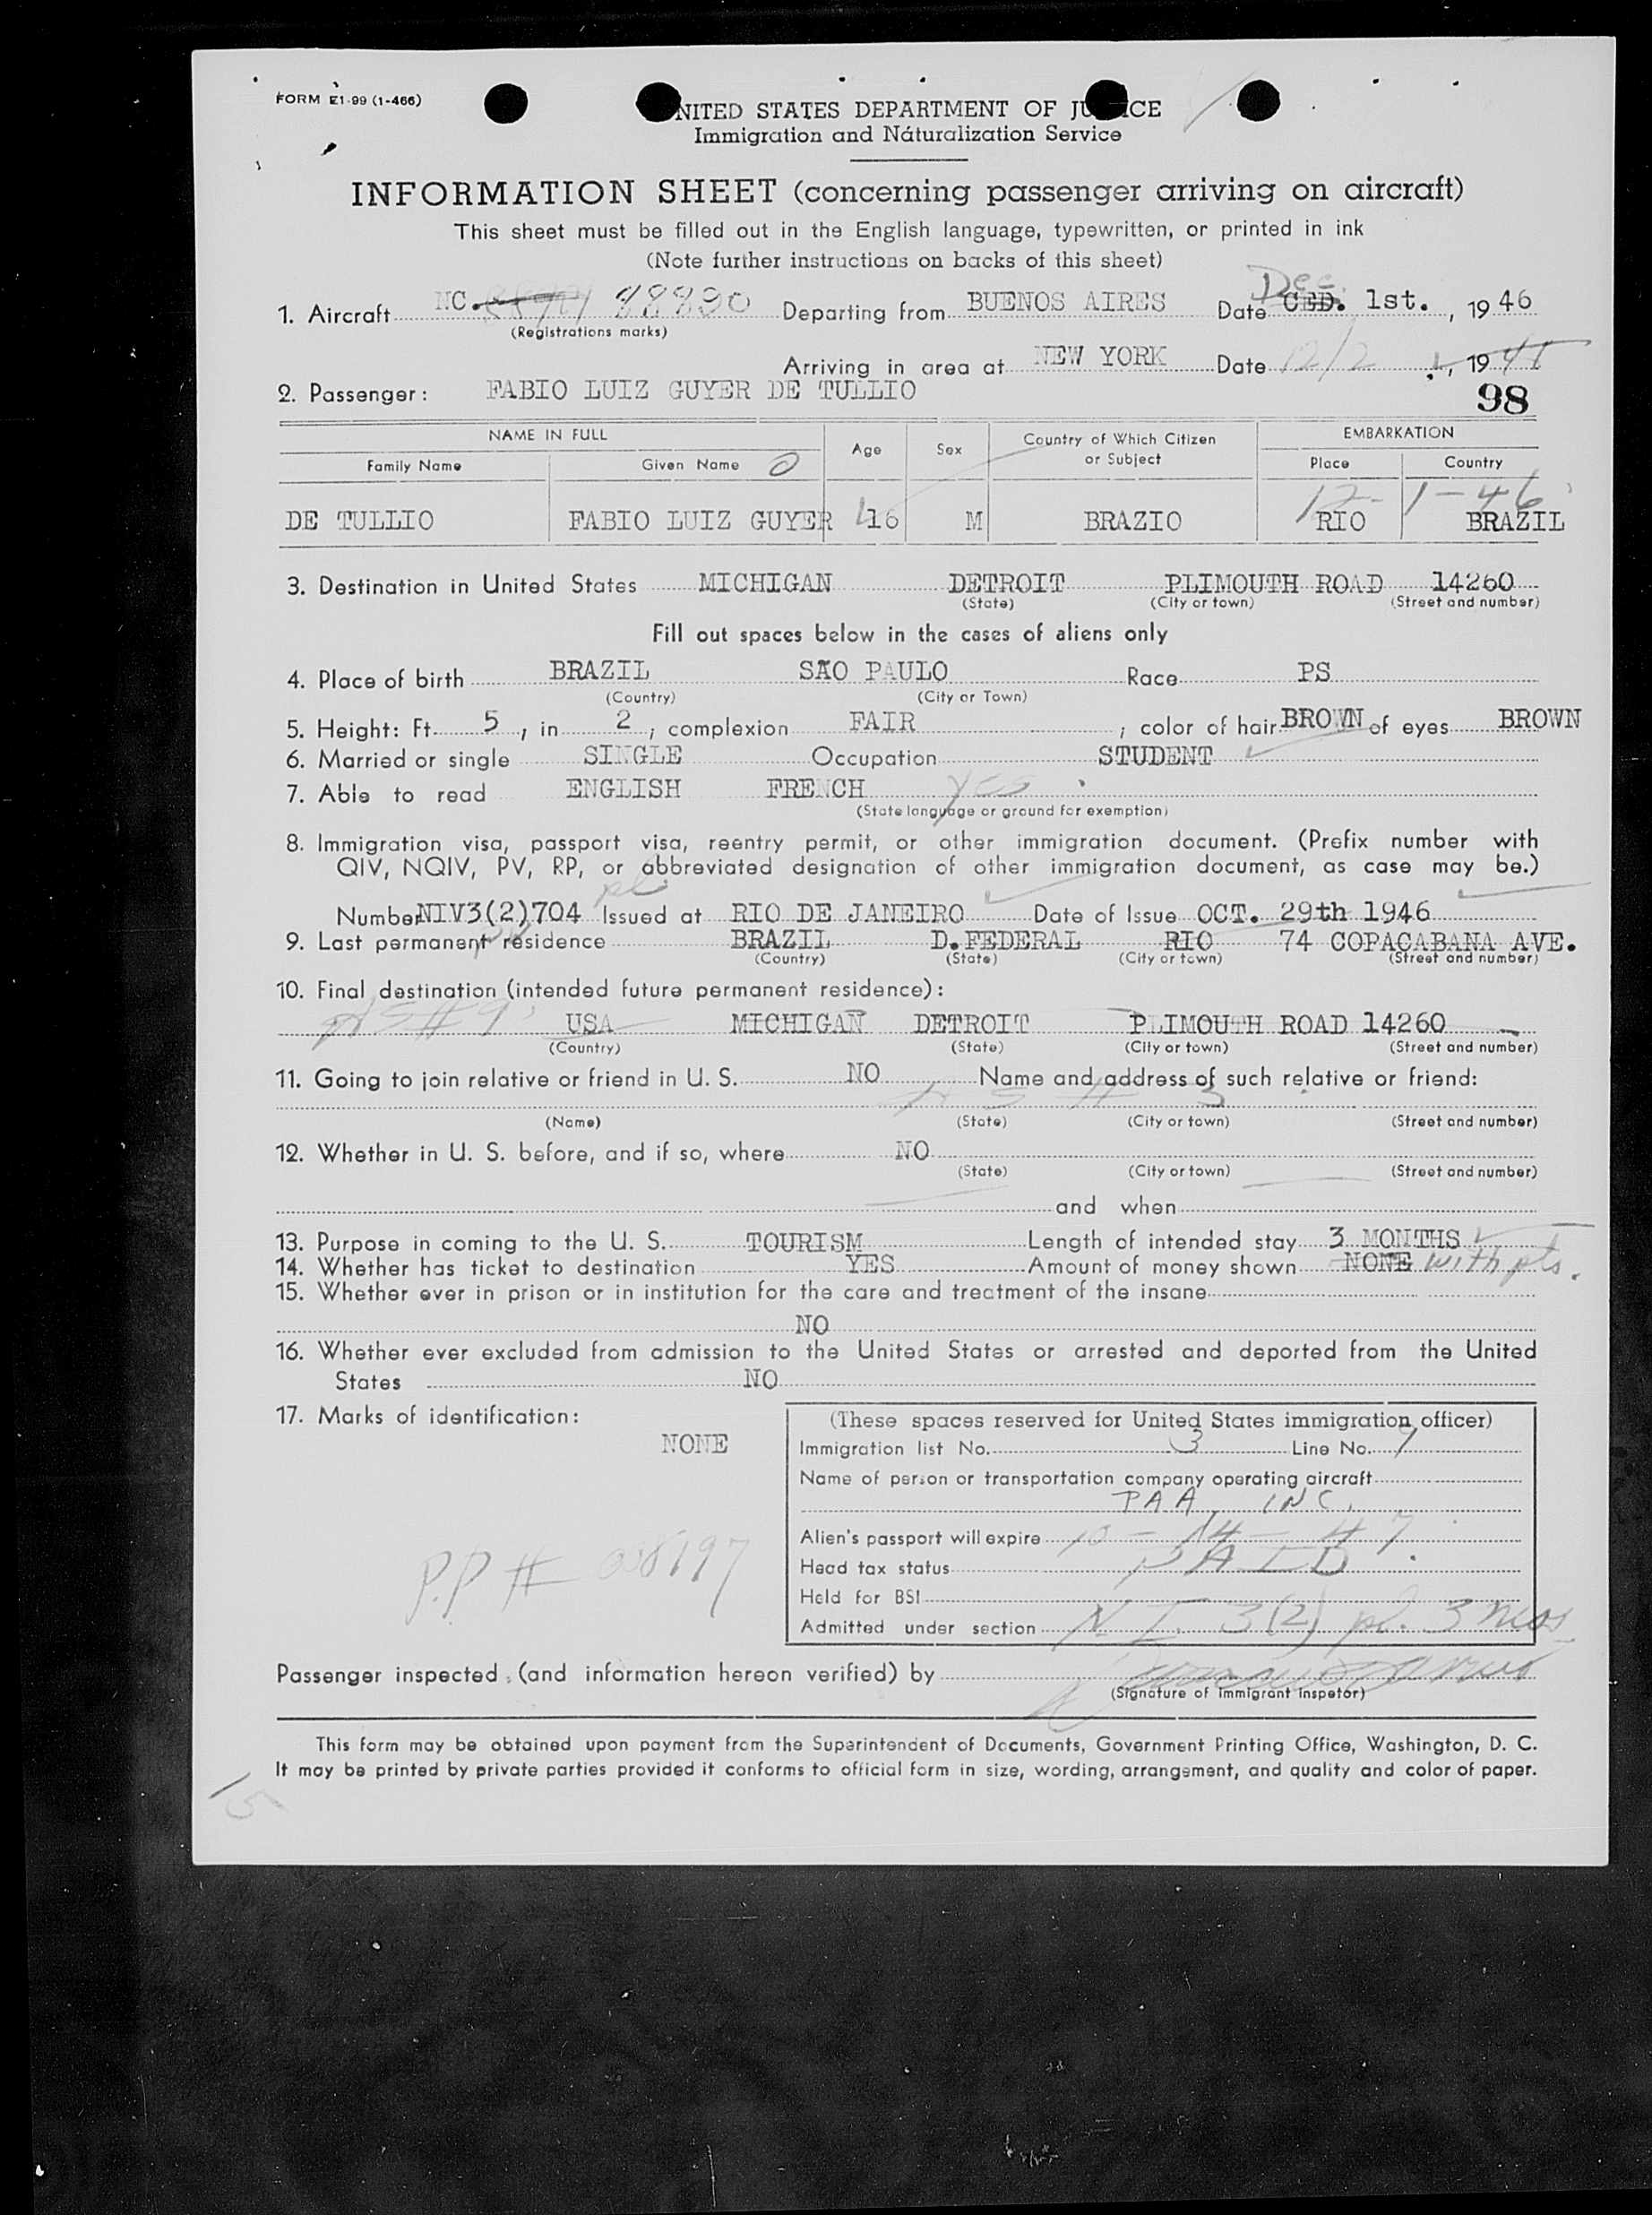 FORM E1-99 (1-466)
NITED STATES DEPARTMENT OF JU CE
Immigration and Naturalization Service
INFORMATION SHEET (concerning passenger arriving on aircraft)
This sheet must be filled out in the English language, typewritten, or printed in ink
(Note further instructions on backs of this sheet)
Dec.
1. Aircraft NC. 88890 Departing from BUENOS AIRES Date CED. 1st., 19 46
(Registrations marks)
Arriving in area at NEW YORK Date 12/2, 19 46
2. Passenger: FABIO LUIZ GUYER DE TULLIO 98
NAME IN FULL Age Sex Country of Which Citizen or Subject EMBARKATION
Family Name Given Name Place Country
12-1-46
DE TULLIO FABIO LUIZ GUYER 16 M BRAZIO RIO BRAZIL
3. Destination in United States MICHIGAN DETROIT PLIMOUTH ROAD 14260
(State) (City or town) (Street and number)
Fill out spaces below in the cases of aliens only
4. Place of birth BRAZIL SÃO PAULO Race PS
(Country) (City or Town)
5. Height: Ft. 5, in 2; complexion FAIR; color of hair BROWN of eyes BROWN
6. Married or single SINGLE Occupation STUDENT
7. Able to read ENGLISH FRENCH yes
(State language or ground for exemption)
8. Immigration visa, passport visa, reentry permit, or other immigration document. (Prefix number with
QIV, NQIV, PV, RP, or abbreviated designation of other immigration document, as case may be.)
Number NIV3(2)704 Issued at RIO DE JANEIRO Date of Issue OCT. 29th 1946
9. Last permanent residence BRAZIL D.FEDERAL RIO 74 COPACABANA AVE.
(Country) (State) (City or town) (Street and number)
10. Final destination (intended future permanent residence):
AS #9 USA MICHIGAN DETROIT PLIMOUTH ROAD 14260
(Country) (State) (City or town) (Street and number)
11. Going to join relative or friend in U. S. NO Name and address of such relative or friend:
AS # 3
(Name) (State) (City or town) (Street and number)
12. Whether in U. S. before, and if so, where NO
(State) (City or town) (Street and number)
and when
13. Purpose in coming to the U. S. TOURISM Length of intended stay 3 MONTHS
14. Whether has ticket to destination YES Amount of money shown NONE with pts.
15. Whether ever in prison or in institution for the care and treatment of the insane
NO
16. Whether ever excluded from admission to the United States or arrested and deported from the United
States NO
17. Marks of identification:
NONE
P.P #
(These spaces reserved for United States immigration officer)
Immigration list No. 3 Line No.
Name of person or transportation company operating aircraft
PAA INC.
Alien's passport will expire 10-14-47
Head tax status PAID.
Held for BSI
Admitted under section N.I. 3(2) pl. 3 mos
Passenger inspected (and information hereon verified) by
(Signature of Immigrant Inspetor)
This form may be obtained upon payment from the Superintendent of Documents, Government Printing Office, Washington, D. C.
It may be printed by private parties provided it conforms to official form in size, wording, arrangement, and quality and color of paper.
15